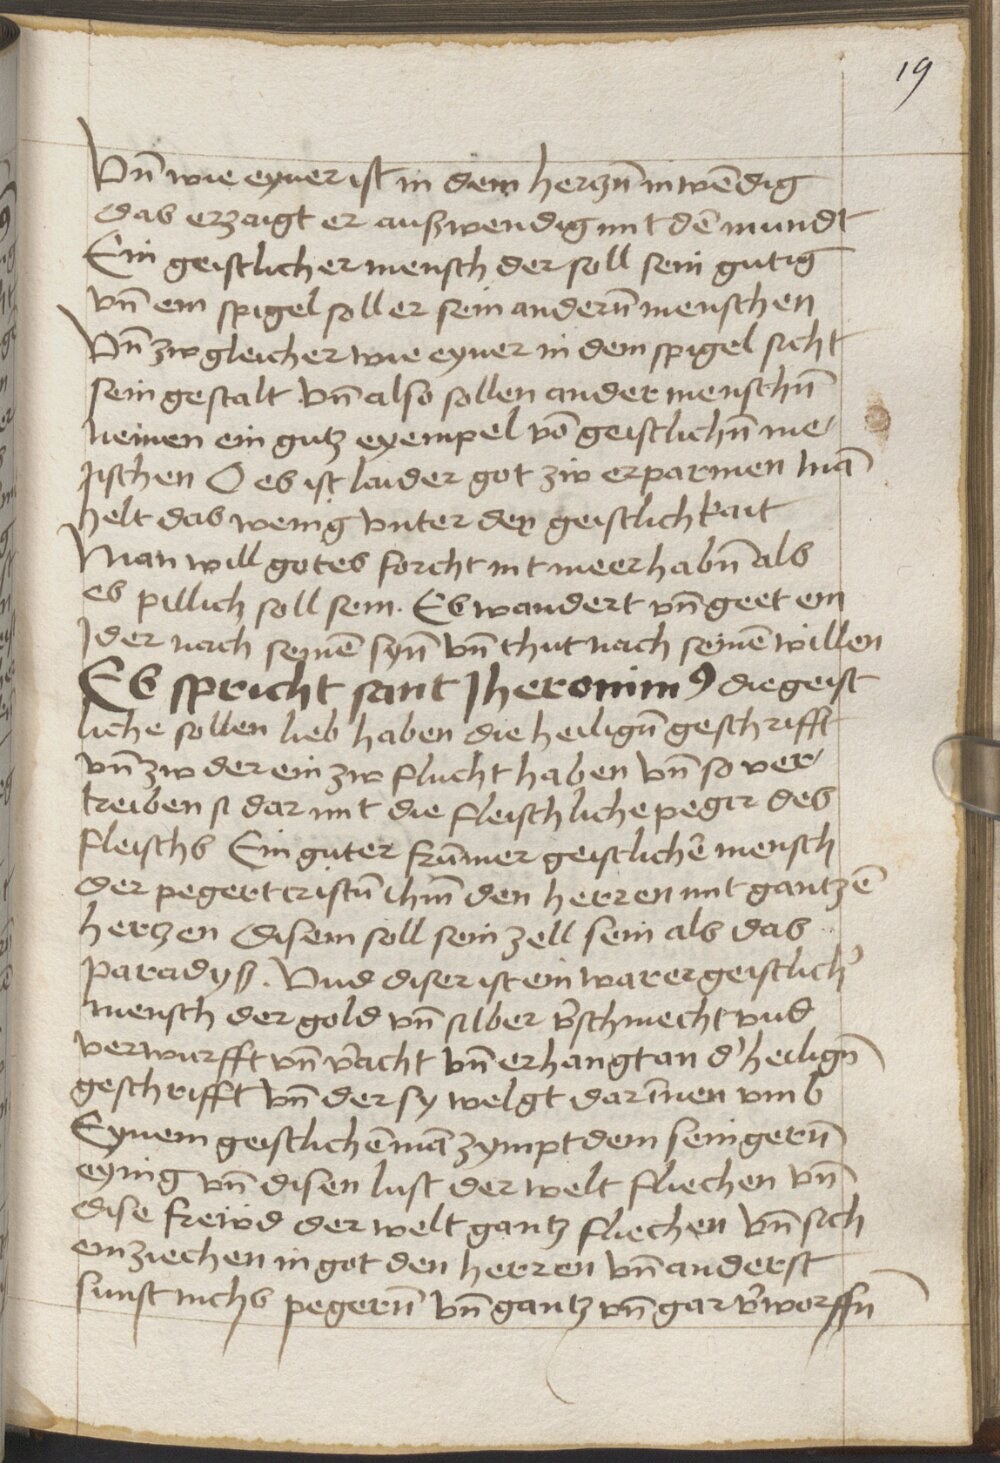 19
Vn̄ wie eyner ist in dem hertzn̄ inwēdig
das erzaigt er außwendig mit dē mundt
Ein geistlicher mensch der soll sein gutig
vn̄ ein spigel soll er sein andern̄ menschen
Vn̄ zw gleicher wie eyner in dem spigel sicht
sein gestalt vn̄ also sollen ander menschn̄
nemen ein gutz exempel vō geistlichn̄ me-
nschen O es ist laider got zw erparmen mā
helt das wenig vnter der geistlichkait
Man will gotes forcht nit meer habn̄ als
es pillich soll sein. Es wandert vn̄ geet ein
Jder nach seinē syn̄ vn̄ thut nach seinē willen
Es spricht sant Jheronimꝰ die geist
liche sollen lieb haben die heilign̄ geschrifft
vn̄ zw der ein zw flucht haben vn̄ so ver-
treiben si dar mit die fleischliche pegir des
fleischs Ein guter frūmer geistlichē mensch
der pegert cristū ihm̄ den herren mit gantzē
hertzen Disem soll sein zell sein als das
paradyß. Vnd diser ist ein warer geistlich'
mensch der gold vn̄ silber v'schmecht vnd
verwurfft vn̄ v'acht vn̄ er hangt an d' heilign̄
geschrifft vn̄ der sy welgt darīnen vmb
Eynem geistlichē mā zympt dem sein gern̄
eynig vn̄ disen lust der welt fliechen vn̄
dise frewd der welt gantz fliechen vn̄ sich
ein ziechen in got den herren vn̄ anderst
sunst nichs pegern̄ vn̄ gantz vn̄ gar v'worffn